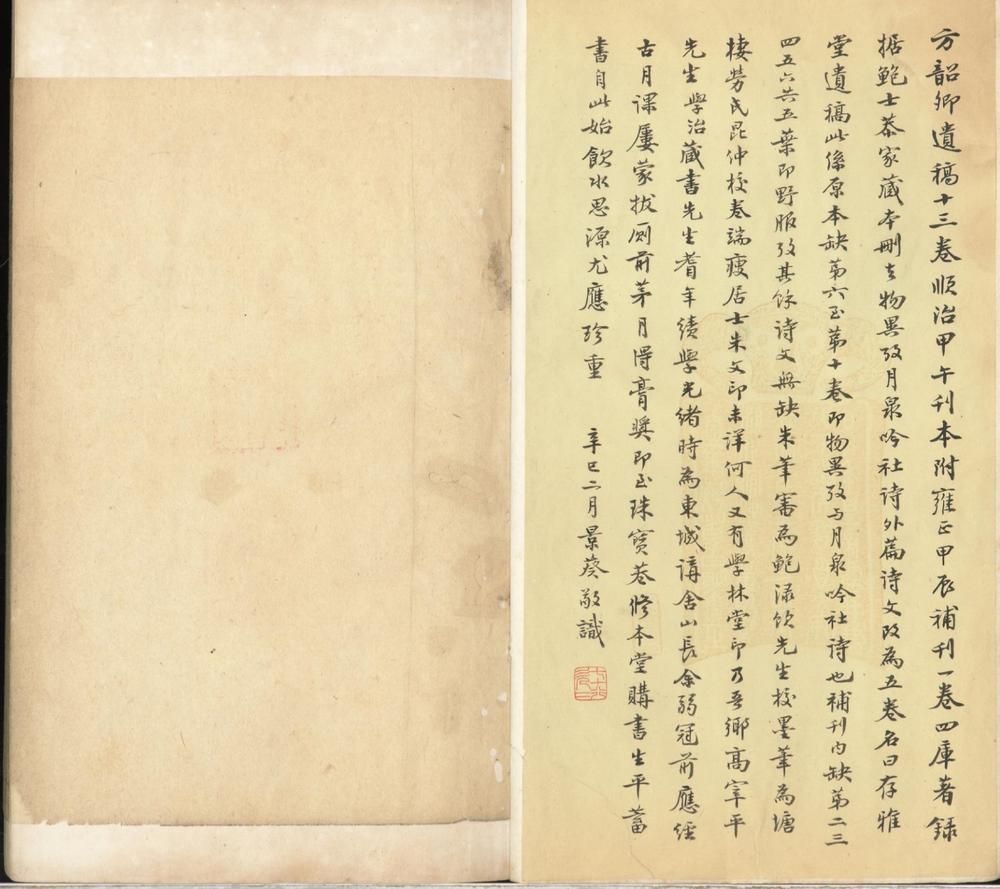 方韶卿遺稿十三卷順治甲午刊本附雍正甲辰補刊一卷四庫著錄
据鮑士恭家藏本刪去物異攷月泉吟社詩外篇詩文改為五卷名曰存雅
堂遺稿此係原本缺第六至第十卷即物異攷与月泉吟社詩也補刊内缺第二三
四五六共五葉即野服攷其餘詩文無缺朱筆審為鮑渌飲先生校墨筆為塘
棲勞氏昆仲校卷端瘦居士朱文印未詳何人又有學林堂印乃吾鄉高宰平
先生學治藏書先生耆年績學光緒時為東城講舍山長余弱冠前應經
古月課屢蒙拔厠前茅月得膏奬即至珠寶巷修本堂購書生平蓄
書自此始飲水思源尤應珍重 辛巳二月景葵敬識